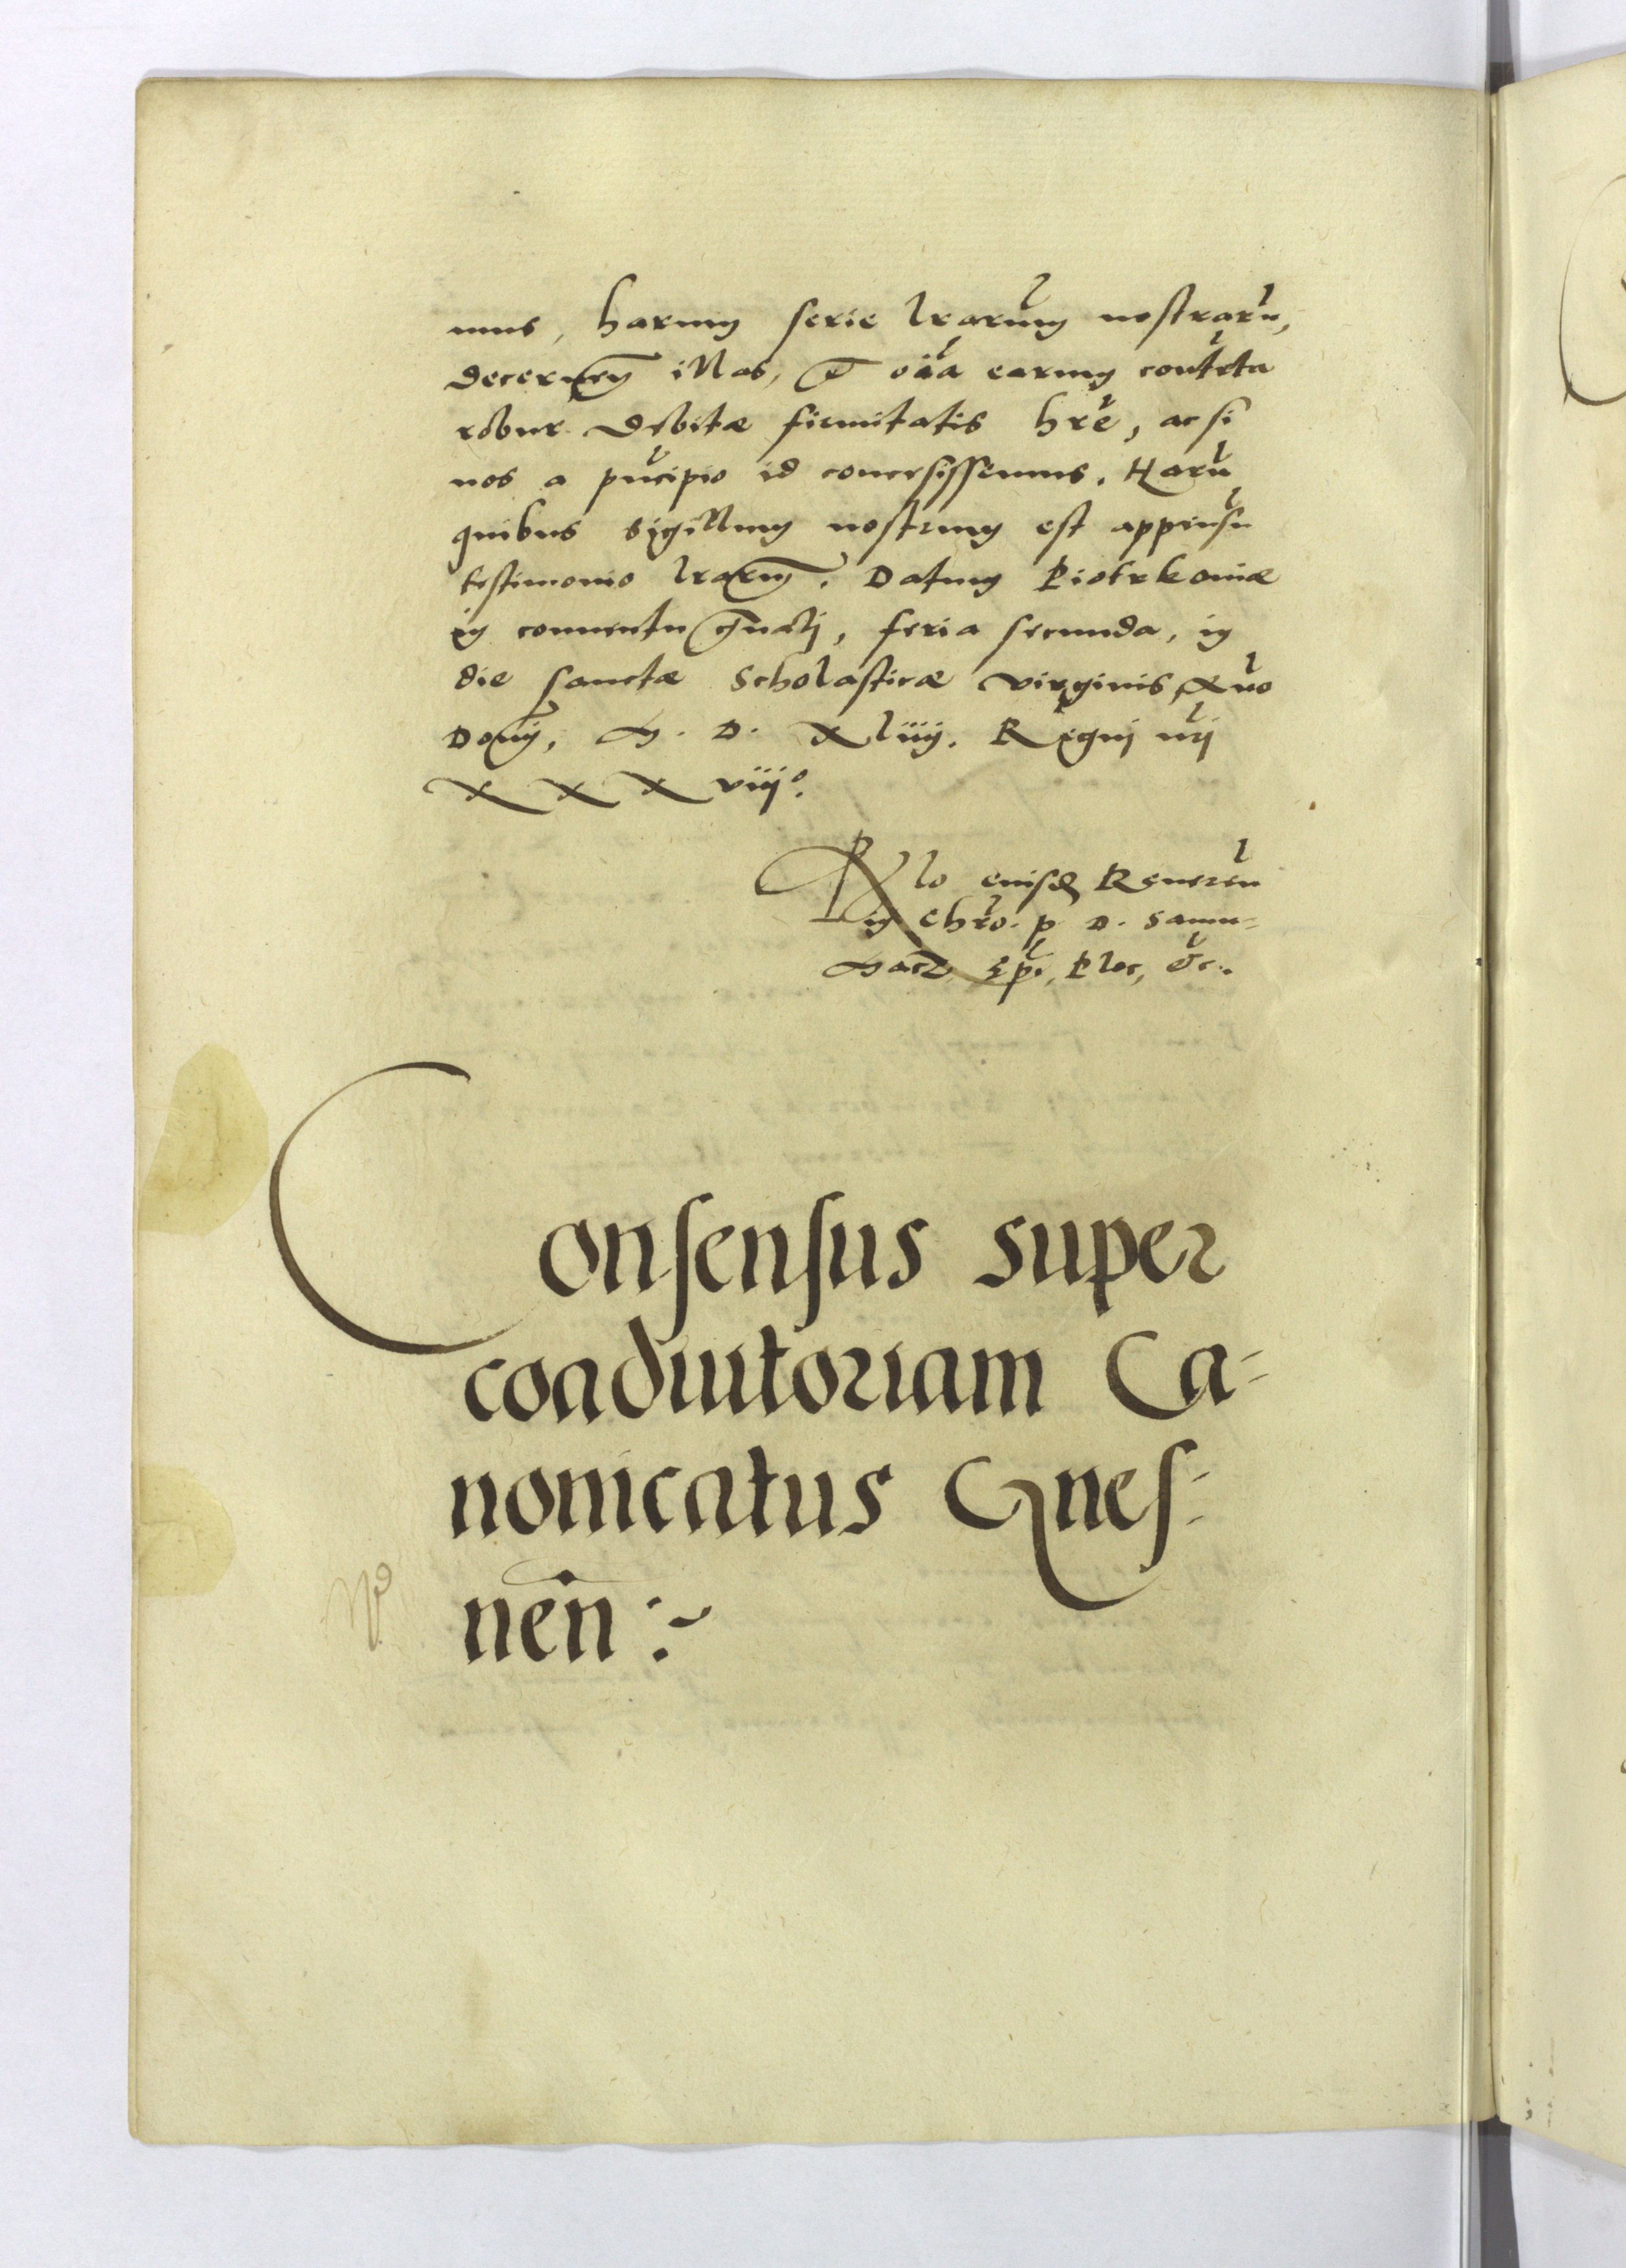 mus, harum serie lrarum nostraru,
decernen illas, et oia earum contēta
robur debitæ firmitatis hre, ac si
nos a pncipio id concessissemus. Haru
quibus sigillum nostrum est appensu
testimonio lrarum. Datum Piotrkoviæ
in conuentu gnali, feria secunda, in
die sanctæ Scholasticæ virginis, Ano
Domi, M. D. Xliiij. Regni nri
XXXviijº.
Rlo eiusd Reueren
in Chro. p. D. Samu=
Macz Epi, Ploc, &c.
Consensus super
coadiutoriam Ca=
nonicatus Gnes=
nen̄ :~